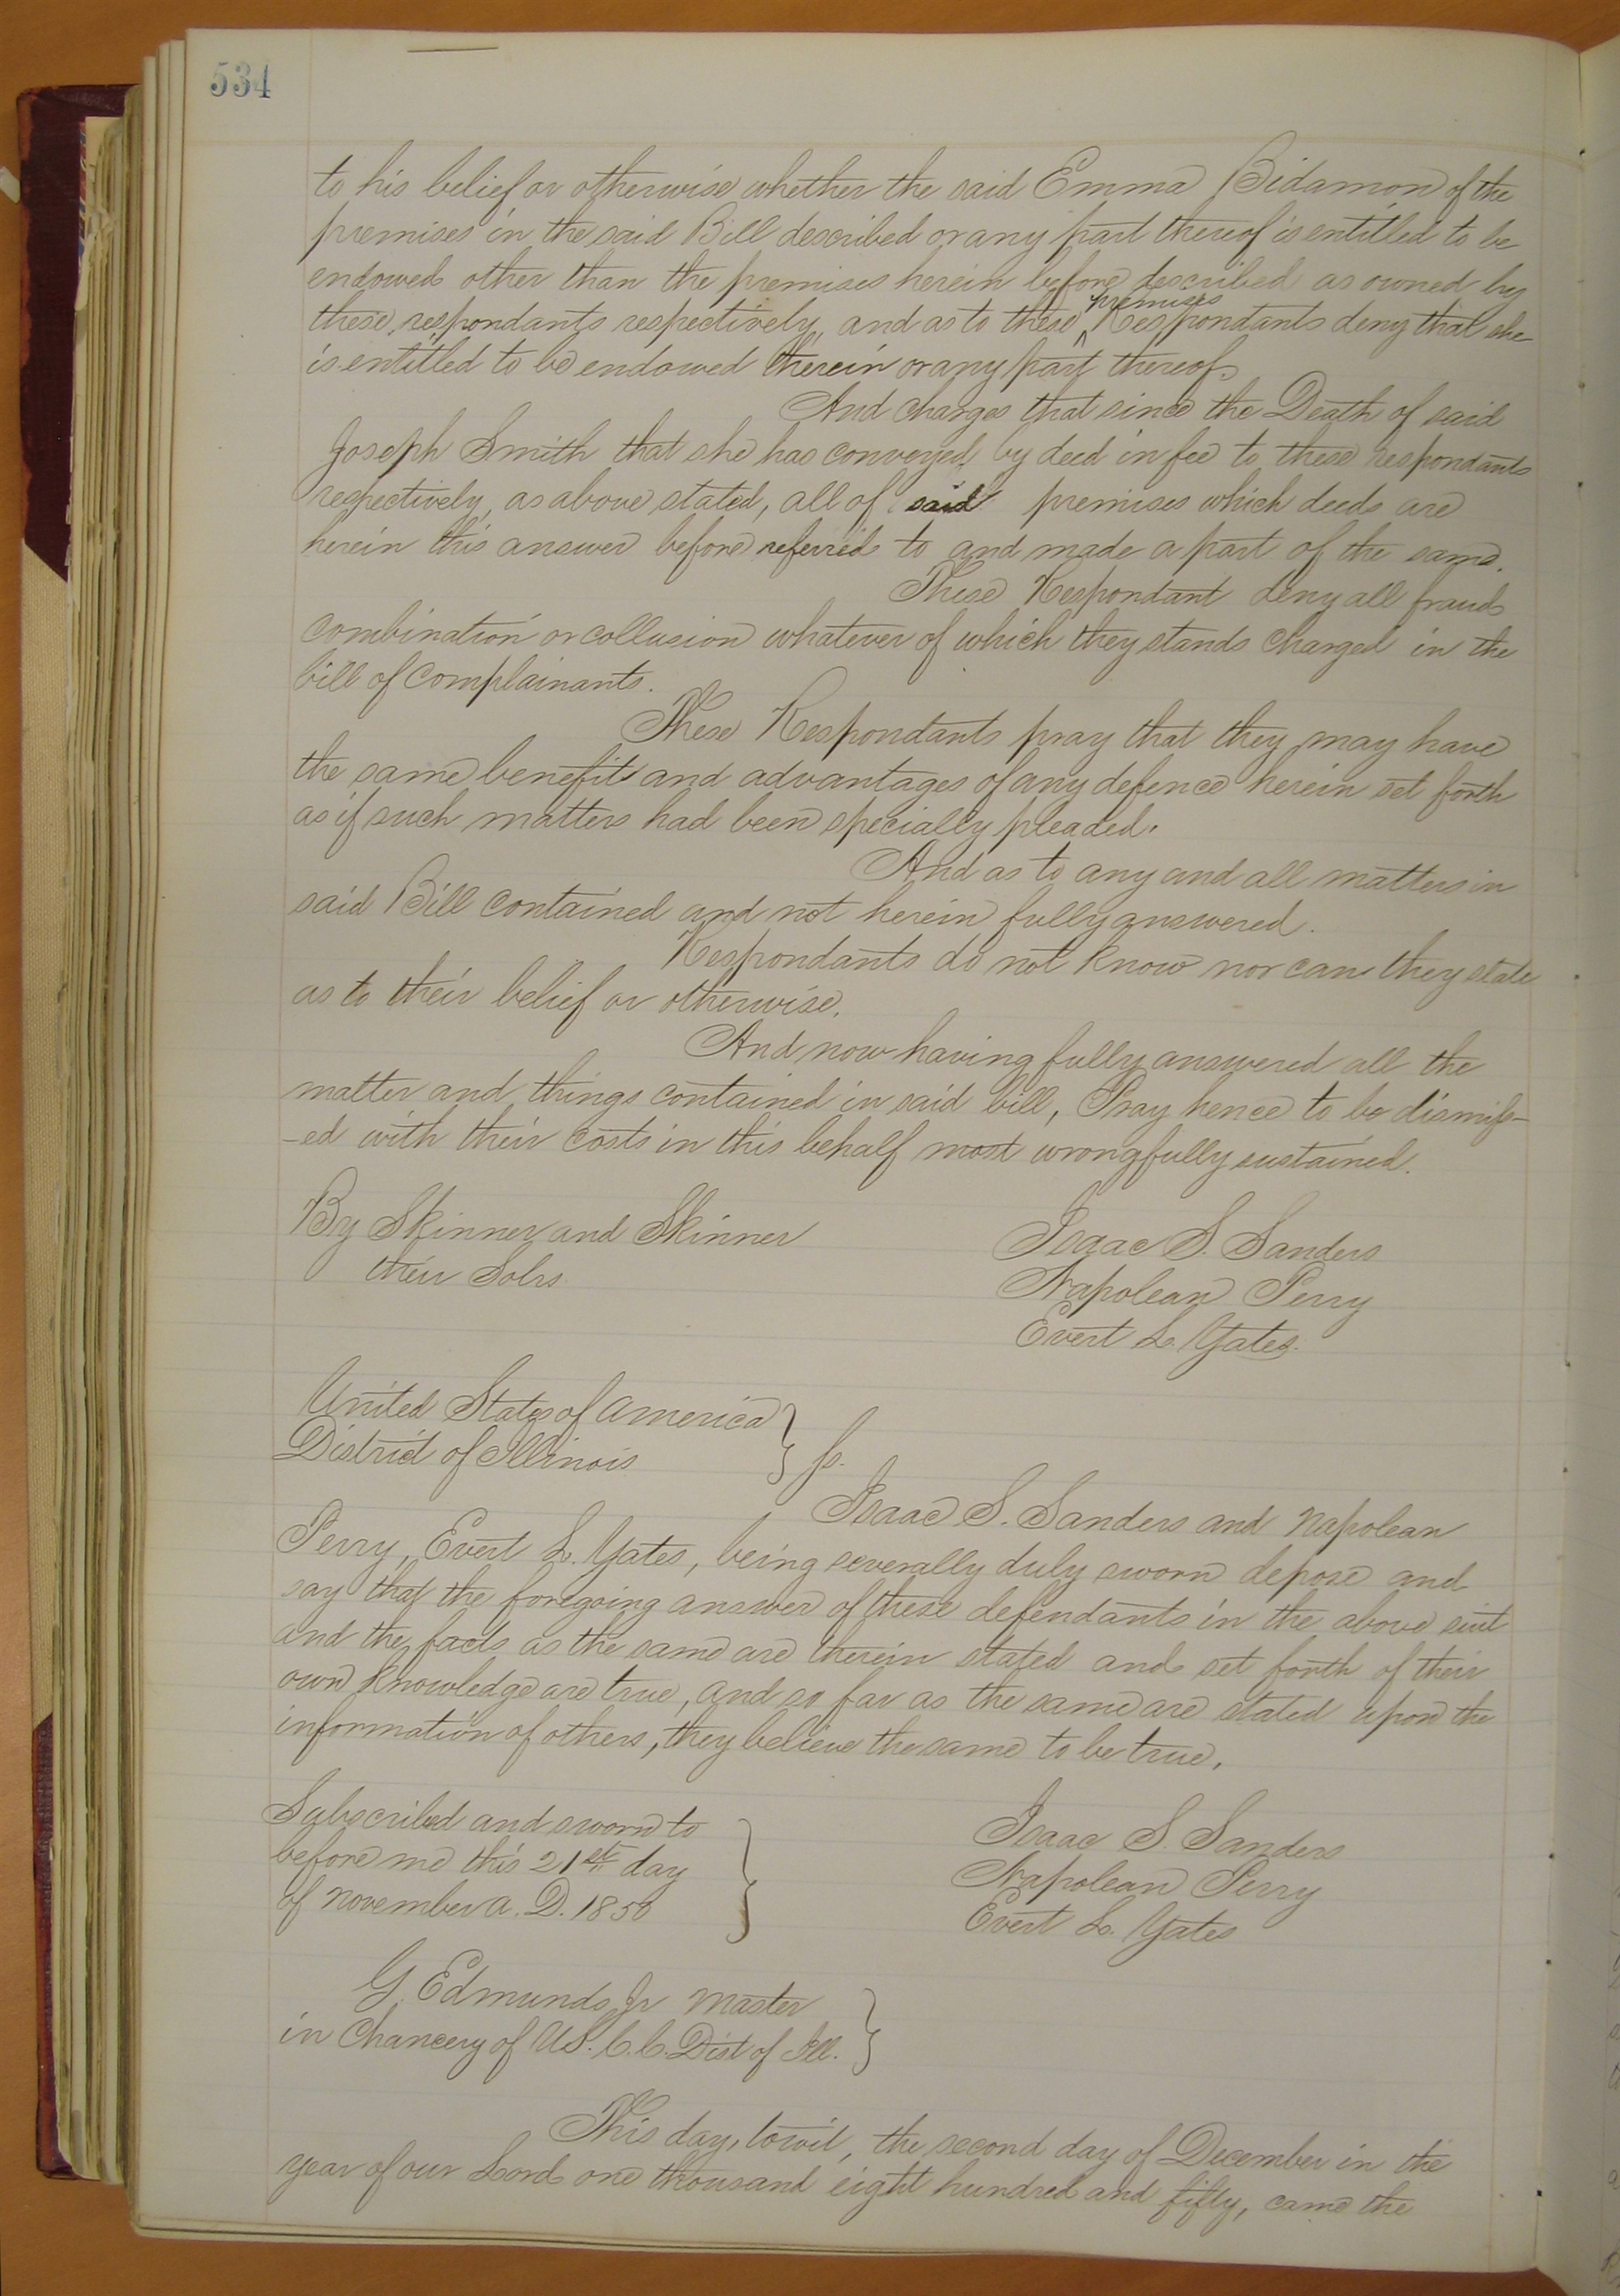 534
to his belief or otherwise whether the said Emma Bidamon of the
premises in the said Bill described or any part thereof is entitled to be
endowed other than the premises herein before described as owned by
these respondants respectively, and as to these ^premises Respondants deny that she
is entitled to be endowed therein or any part thereof.
And charges that since the Death of said
Joseph Smith that she has conveyed by deed in fee to these respondants
respectively, as above stated, all of said premises which deeds are
herein this answer before referred to and made a part of the same.
These Respondant deny all fraud
combination or collusion whatever of which they stands charged in the
bill of complainants.
These Respondants pray that they may have
the same benefits and advantages of any defence herein set forth
as if such matters had been specially pleaded.
And as to any and all matters in
said Bill contained and not herein fully answered.
Respondants do not know nor can they state
as to their belief or otherwise.
And now having fully answered all the
matter and things contained in said bill, Pray hence to be dismiss-
-ed with their costs in this behalf most wrongfully sustained.
By Skinner and Skinner
their Solrs.
Isaac S. Sanders
Napolean Perry
Evert L. Yates.
United States of America }
District of Illinois } ss.
Isaac S. Sanders and Napolean
Perry, Evert L. Yates, being severally duly sworn depose and
say that the foregoing answer of these defendants in the above suit
and the facts as the same are therein stated and set forth of their
own knowledge are true, and so far as the same are stated upon the
information of others, they believe the same to be true.
Subscribed and sworn to
before me this 21st day
of November A. D. 1850 }
Isaac S. Sanders
Napolean Perry
Evert L. Yates
G. Edmunds Jr Master
in Chancery of U.S. C. C. Dist of Ill. }
This day, towit, the second day of December in the
year of our Lord one thousand eight hundred and fifty, came the